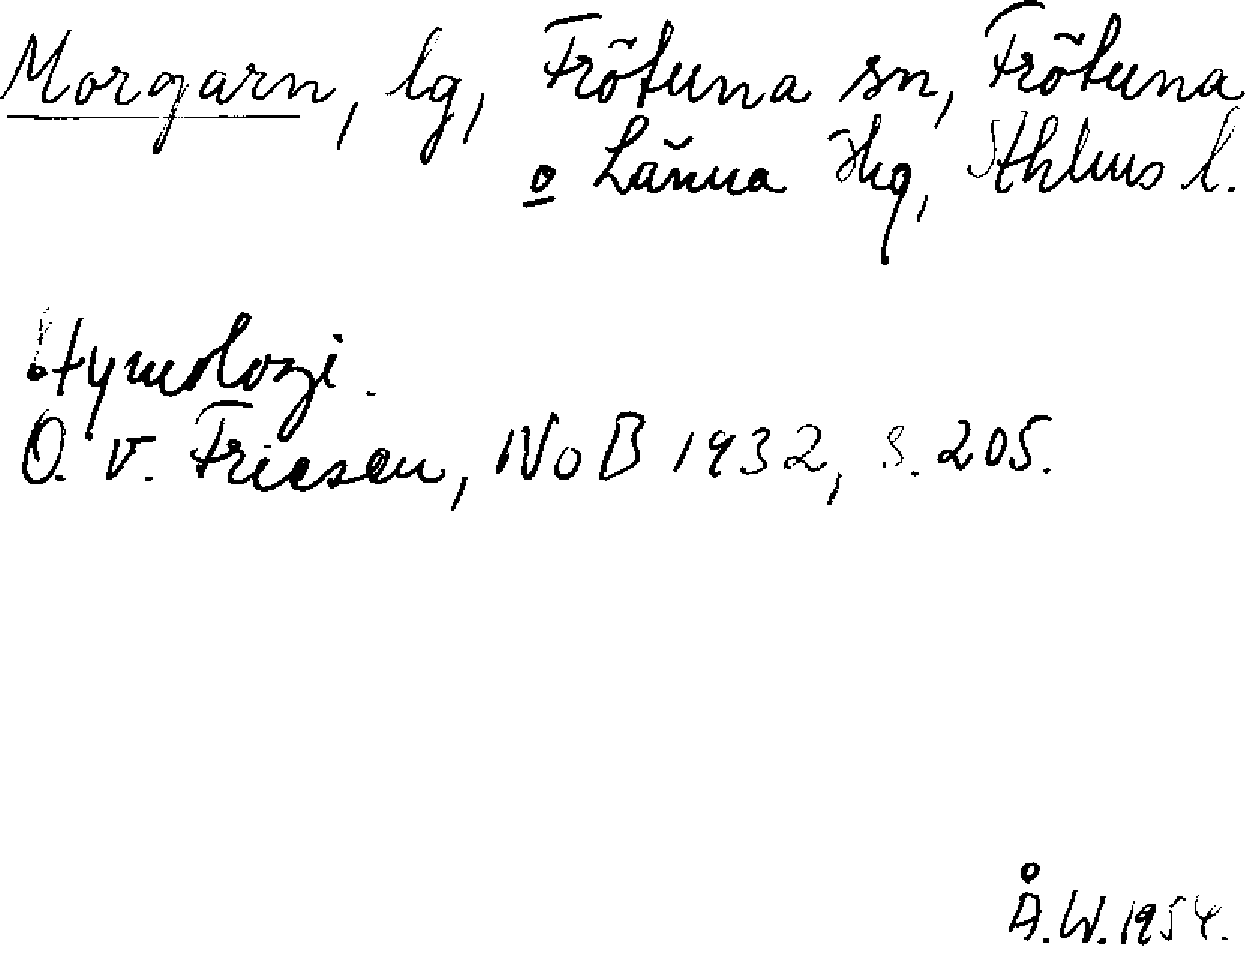 Morgarn, lg, Frötuna sn, Frötuna
o Länna skg, Sthlms l.
Etymologi.
O. v. Friesen, NoB 1932, s. 205.
Å.W. 1954.